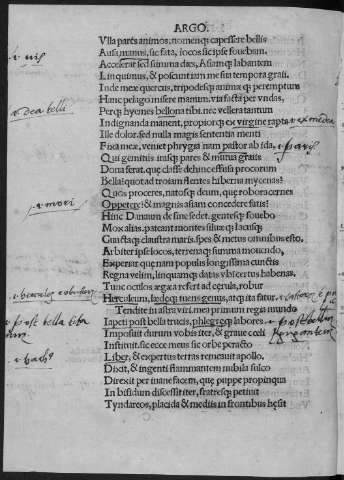 ARGO.
Vlla parés animos, nomenq; capessere bellis
Ausa manus, sic fata, iocos sic ipse fouebam.
Accelerat sed summa dies, Asiamq; labantem
Linquimus, & poscunt iam me sua tempora graii.
Inde meæ quercus, tripodesq; animæq; peremptum
Hanc pelago misere manum. via facta per vndas,
Perq; hyemes bellona tibi. nec vellera tantum
Indignanda manent, propiorq; ex virgine rapta
Ille dolor. sed nulla magis sententia menti
Fixa meæ, veniet phrygia nam pastor ab ida
Qui gemitus irasq; pares & mutua graiis
Dona ferat. quę classe dehinc effusa procorum
Bella: quot ad troiam flentes hiberna mycenas?
Quos proceres, natosq; deum, quę robora cernes
Oppetere: & magnis asiam concedere fatis?
Hinc Danaum de fine sedet. gentesq; fouebo
Mox alias. pateant montes siluæq; lacusq;
Cunctaq; claustra maris. spes & metus omnibus esto.
Arbiter ipse locos, terrenaq; summa mouendo,
Experiar quænam populis longissima cunctis
Regna velim, linquamq; datas vbi certus habenas.
Tunc oculos ægæa refert ad cęrula, robur
Herculeum, lędęq; tuens genus, atq; ita fatur.
Tendite in astra viri. me primum regia mundo
Iapeti post bella trucis, phlegreęq; labores
Imposuit. durum vobis iter, & graue cœli
Institui. sic ecce meus sic orbe peracto
Liber, & expertus terras remeauit apollo.
Dixit, & ingenti flammantem nubila sulco
Direxit per inane facem, quę puppe propinqua
In bifidum discessit iter, fratresq; petiuit
Tyndareos, placida & mediis in frontibus hęsit
dea belli
ex medea
paris
mori
post bella